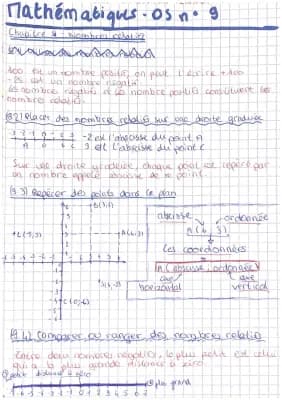 Mathématiques - OS n° 9
Chapitre 4 - Nombres relatifs
100 est un nombre positif, on peut l'écrire +100
est un nombre négatif
les nombres négatifs et les nombres positifs constituent les
nombres relatifs.
§2) Placer des nombres relatifs sur une droite graduée
-2 est l'abscisse du point A
3 est l'abscisse du point C
Sur une droite graduée, chaque point est repéré par
un nombre appelé abscisse de ce point.
§3) Repérer des points dans le plan
abscisse
ordonnée
Les coordonnées
(abscisse, ordonnée)
horizontal
vertical
§4) Comparer ou ranger des nombres relatifs
Entre deux nombres négatifs, le plus petit est celui
qui a la plus grande distance à zéro
petit distance à zéro
plus grand